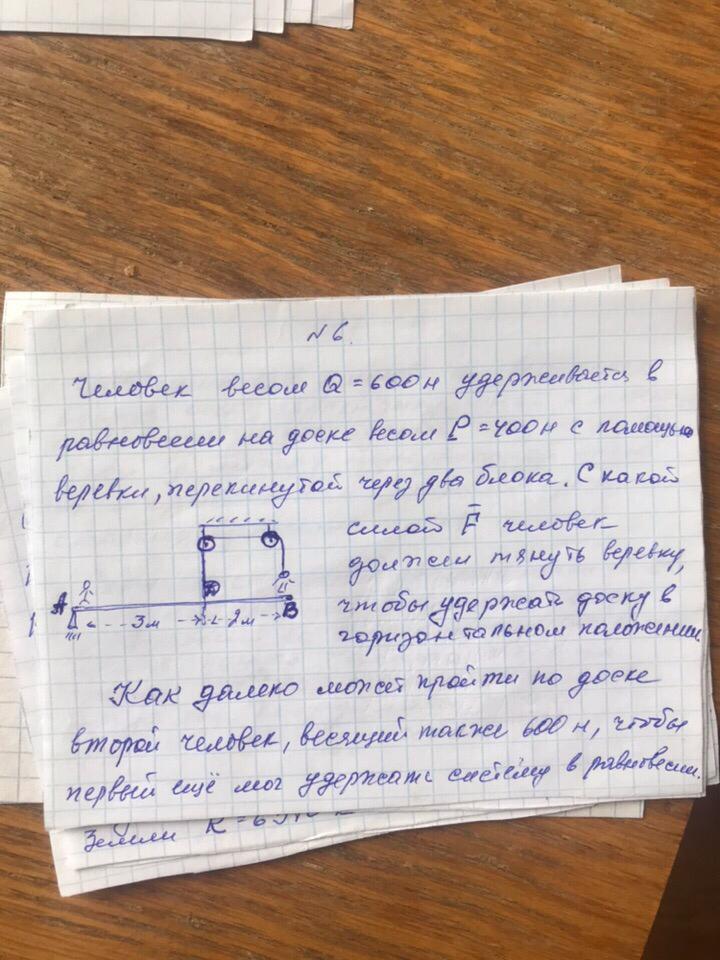 N 6.
Человек весом Q = 600 н удерживается в
равновесии на доске весом P = 400 н с помощью
веревки, перекинутой через два блока. С какой
силой F человек
должен тянуть веревку,
чтобы удержать доску в
горизонтальном положении.
A 3м 2м B
Как далеко может пройти по доске
второй человек, весящий также 600 н, чтобы
первый ещё мог удержать систему в равновесии.
Земли R =